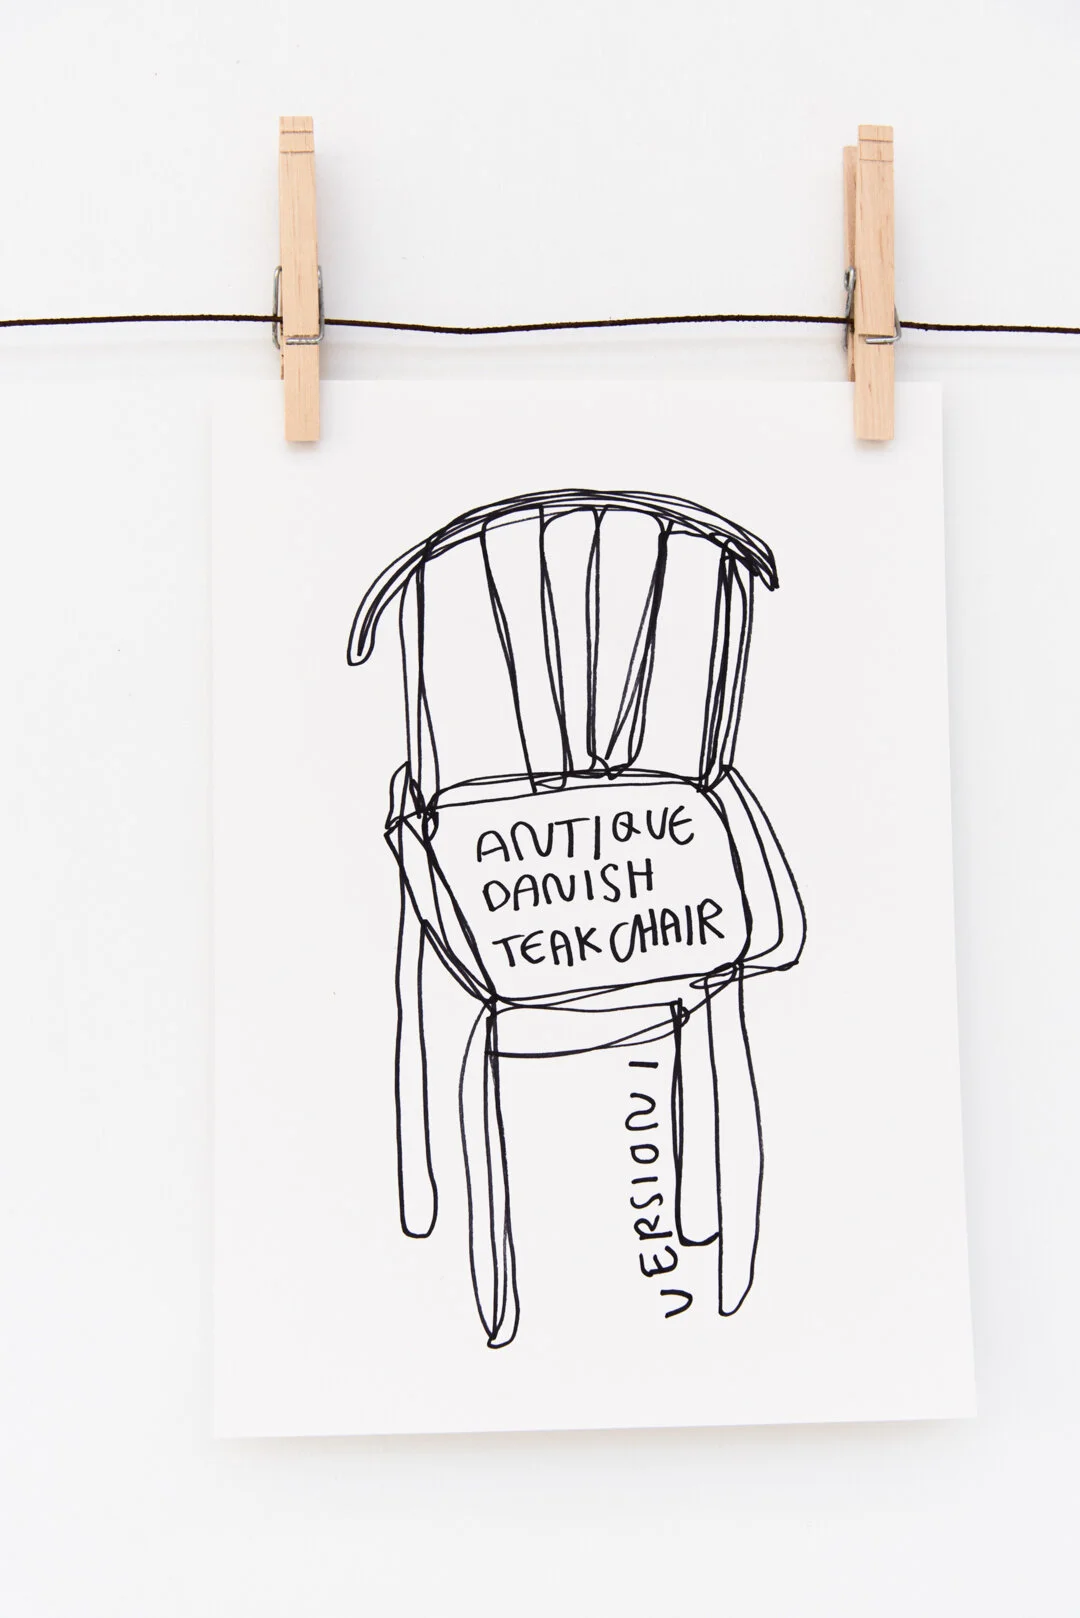 ANTIQUE
DANISH
TEAK CHAIR
VERSION 1